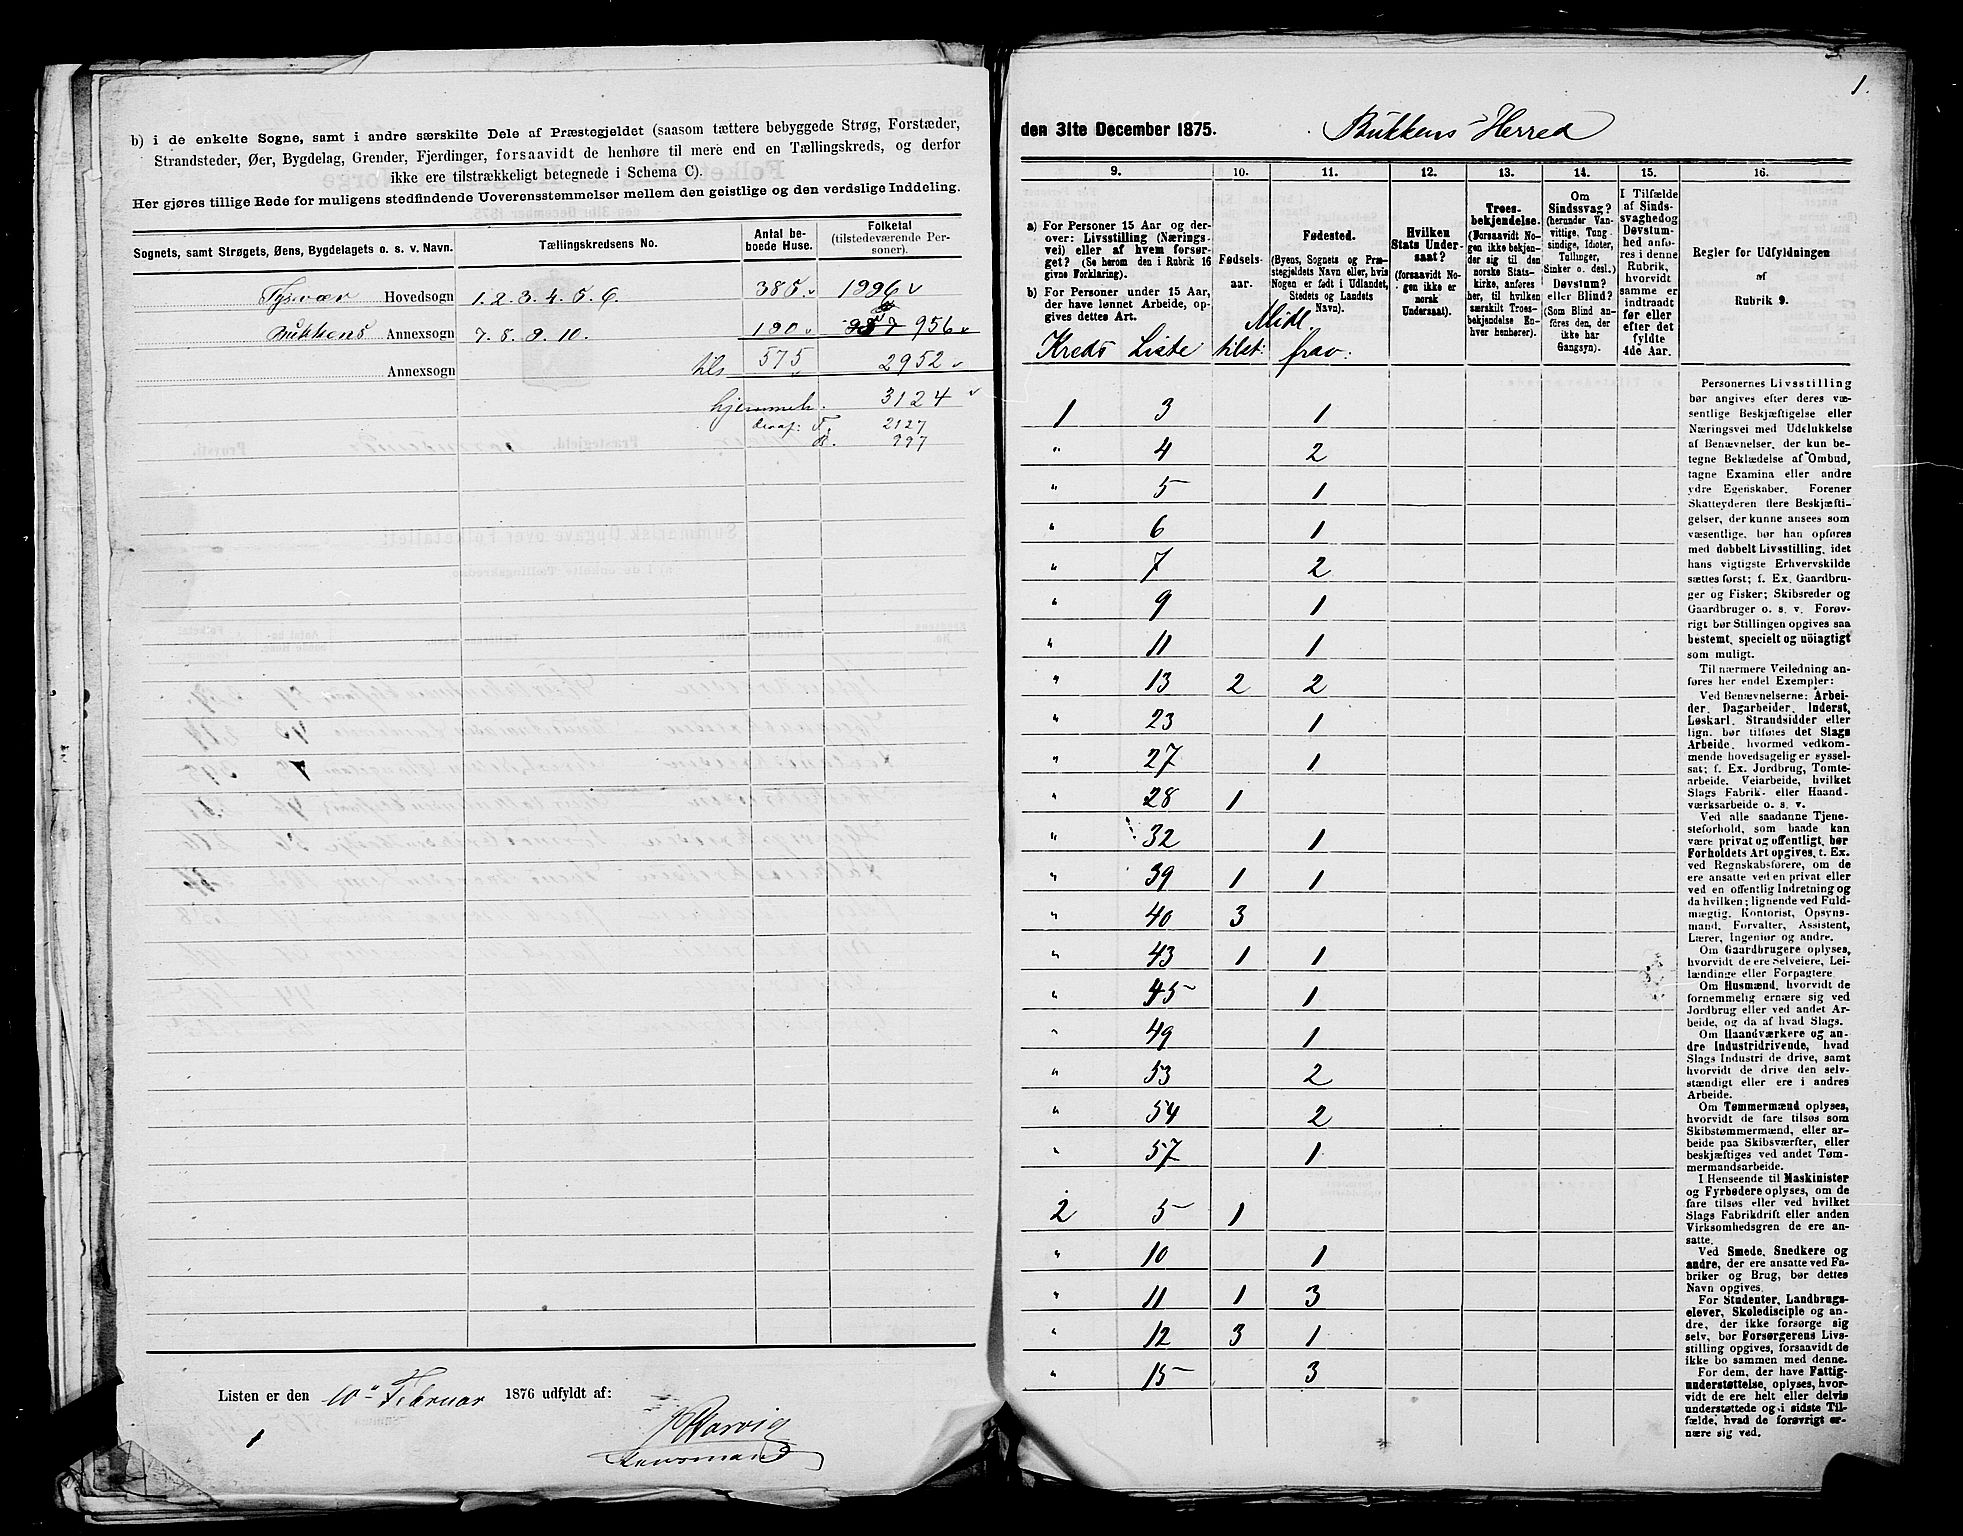 b) i de enkelte Sogne, samt i andre særskilte Dele af Præstegjeldet (saasom tættere bebyggede Strøg, Forstæder,
Strandsteder, Øer, Bygdelag, Grender, Fjerdinger, forsaavidt de henhøre til mere end en Tællingskreds, og derfor
ikke ere tilstrækkeligt betegnede i Schema C).
Her gjøres tillige Rede for muligens stedfindende Uoverensstemmelser mellem den geistlige og den verdslige Inddeling.
Sognets, samt Strøgets, Øens, Bygdelagets o. s. v. Navn.
Tællingskredsens No.
Antal be-
boede Huse.
Folketal
(tilstedeværende Per-
soner).
Tysvær Hovedsogn 1. 2. 3. 4. 5. 6. 385 1996
Bukkens Annexsogn 7. 8. 9. 10. 190 957 956
Annexsogn tils 575 2952
hjemmeh. 3124
deraf: T. 2127
B. 997
Listen er den 10de Februar 1876 udfyldt af:
Lensmand
1
1.
den 31te December 1875. Bukkens Herred
9.
a) For Personer 15 Aar og der-
over: Livsstilling (Nærings-
vei) eller af hvem forsør-
get? (Se herom den i Rubrik 16
givne Forklaring).
b) For Personer under 15 Aar,
der have lønnet Arbeide, op-
gives dettes Art.
10.
Fødsels-
aar.
11.
Fødested.
(Byens, Sognets og Præ-
stegjeldets Navn eller, hvis
Nogen er født i Udlandet,
Stedets og Landets
Navn).
12.
Hvilken
Stats Under-
saat?
(forsaavidt No-
gen ikke er
norsk
Undersaat).
13.
Troes-
bekjendelse.
(Forsaavidt No-
gen ikke bekjen-
der sig til den
norske Stats-
kirke, anføres
her, til hvilken
særskilt Troes-
bekjendelse En-
hver henhører).
14.
Om
Sindssvag?
(herunder Van-
vittige, Tung-
sindige, Idioter,
Tullinger,
Sinker o. desl.)
Døvstum?
eller Blind?
(Som Blind an-
føres den, der
ikke har
Gangsyn).
15.
I Tilfælde
af Sinds-
svaghed og
Døvstum-
hed anfø-
res i denne
Rubrik,
hvorvidt
samme er
indtraadt
før eller
efter det
fyldte
4de Aar.
16.
Regler for Udfyldningen
af
Rubrik 9.
Midl.
Kreds Liste tilst: frav:
1 3 1
" 4 2
" 5 1
" 6 1
" 7 2
" 9 1
" 11 1
" 13 2 2
" 23 1
" 27 1
" 28 1
" 32 1
" 39 1 1
" 40 3
" 43 1 1
" 45 1
" 49 1
" 53 2
" 54 2
" 57 1
2 5 1
" 10 1
" 11 1 3
" 12 3 1
" 15 3
Personernes Livsstilling
bør angives efter deres væ-
sentlige Beskjæftigelse eller
Næringsvei med Udelukkelse
af Benævnelser, der kun be-
tegne Beklædelse af Ombud,
tagne Examina eller andre
ydre Egenskaber. Forener
Skatteyderen flere Beskjæfti-
gelser, der kunne ansees som
væsentlige, bør han opføres
med dobbelt Livsstilling, idet
hans vigtigste Erhvervskilde
sættes først; f. Ex. Gaardbru-
ger og Fisker; Skibsreder og
Gaardbruger o. s. v. Forøv-
rigt bør Stillingen opgives saa
bestemt, specielt og nøiagtigt
som muligt.
Til nærmere Veiledning an-
føres her endel Exempler:
Ved Benævnelserne: Arbei-
der, Dagarbeider, Inderst,
Løskarl, Strandsidder eller
lign. bør tilføies det Slags
Arbeide, hvormed vedkom-
mende hovedsagelig er syssel-
sat; f. Ex. Jordbrug, Tomte-
arbeide, Veiarbeide, hvilket
Slags Fabrik- eller Haand-
værksarbeide o. s. v.
Ved alle saadanne Tjene-
steforhold, som baade kan
være privat og offentligt, bør
Forholdets Art opgives, t. Ex.
ved Regnskabsførere, om de
ere ansatte ved en privat eller
ved en offentlig Indretning og
da hvilken; lignende ved Fuld-
mægtig, Kontorist, Opsyns-
mand, Forvalter, Assistent,
Lærer, Ingeniør og andre.
Om Gaardbrugere oplyses,
hvorvidt de ere Selveiere, Lei-
lændinge eller Forpagtere.
Om Husmænd, hvorvidt de
fornemmelig ernære sig ved
Jordbrug eller ved andet Ar-
beide, og da af hvad Slags.
Om Haandværkere og an-
dre Industridrivende, hvad
Slags Industri de drive, samt
hvorvidt de drive den selv-
stændigt eller ere i andres
Arbeide.
Om Tømmermænd oplyses,
hvorvidt de fare tilsøs som
Skibstømmermænd, eller ar-
beide paa Skibsværfter, eller
beskjæftiges ved andet Tøm-
mermandsarbeide.
I Henseende til Maskinister
og Fyrbødere oplyses, om de
fare tilsøs eller ved hvilket
Slags Fabrikdrift eller anden
Virksomhedsgren de ere an-
satte.
Ved Smede, Snedkere og
andre, der ere ansatte ved Fa-
briker og Brug, bør dettes
Navn opgives.
For Studenter, Landbrugs-
elever, Skoledisciple og an-
dre, der ikke forsørge sig
selv, bør Forsørgerens Livs-
stilling opgives, forsaavidt de
ikke bo sammen med denne.
For dem, der have Fattig-
understøttelse, oplyses, hvor-
vidt de ere helt eller delvis
understøttede og i sidste Til-
fælde, hvad de forøvrigt er-
nære sig ved.